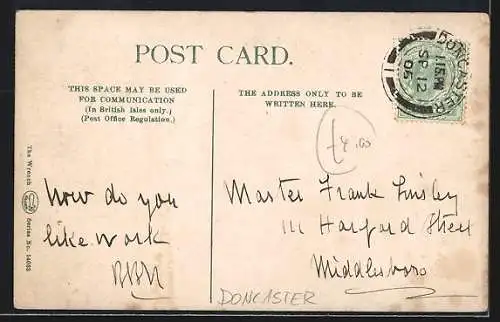 POST CARD.
THIS SPACE MAY BE USED
FOR COMMUNICATION
(In British Isles only.)
(Post Office Regulation.)
THE ADDRESS ONLY TO BE
WRITTEN HERE.
DONCASTER
11.15AM
SP 12
05
The Wrench
Series No. 14088
£4.00
how do you
like work
Master Frank Linsley
111 Harford Street
Middlesboro
DONCASTER